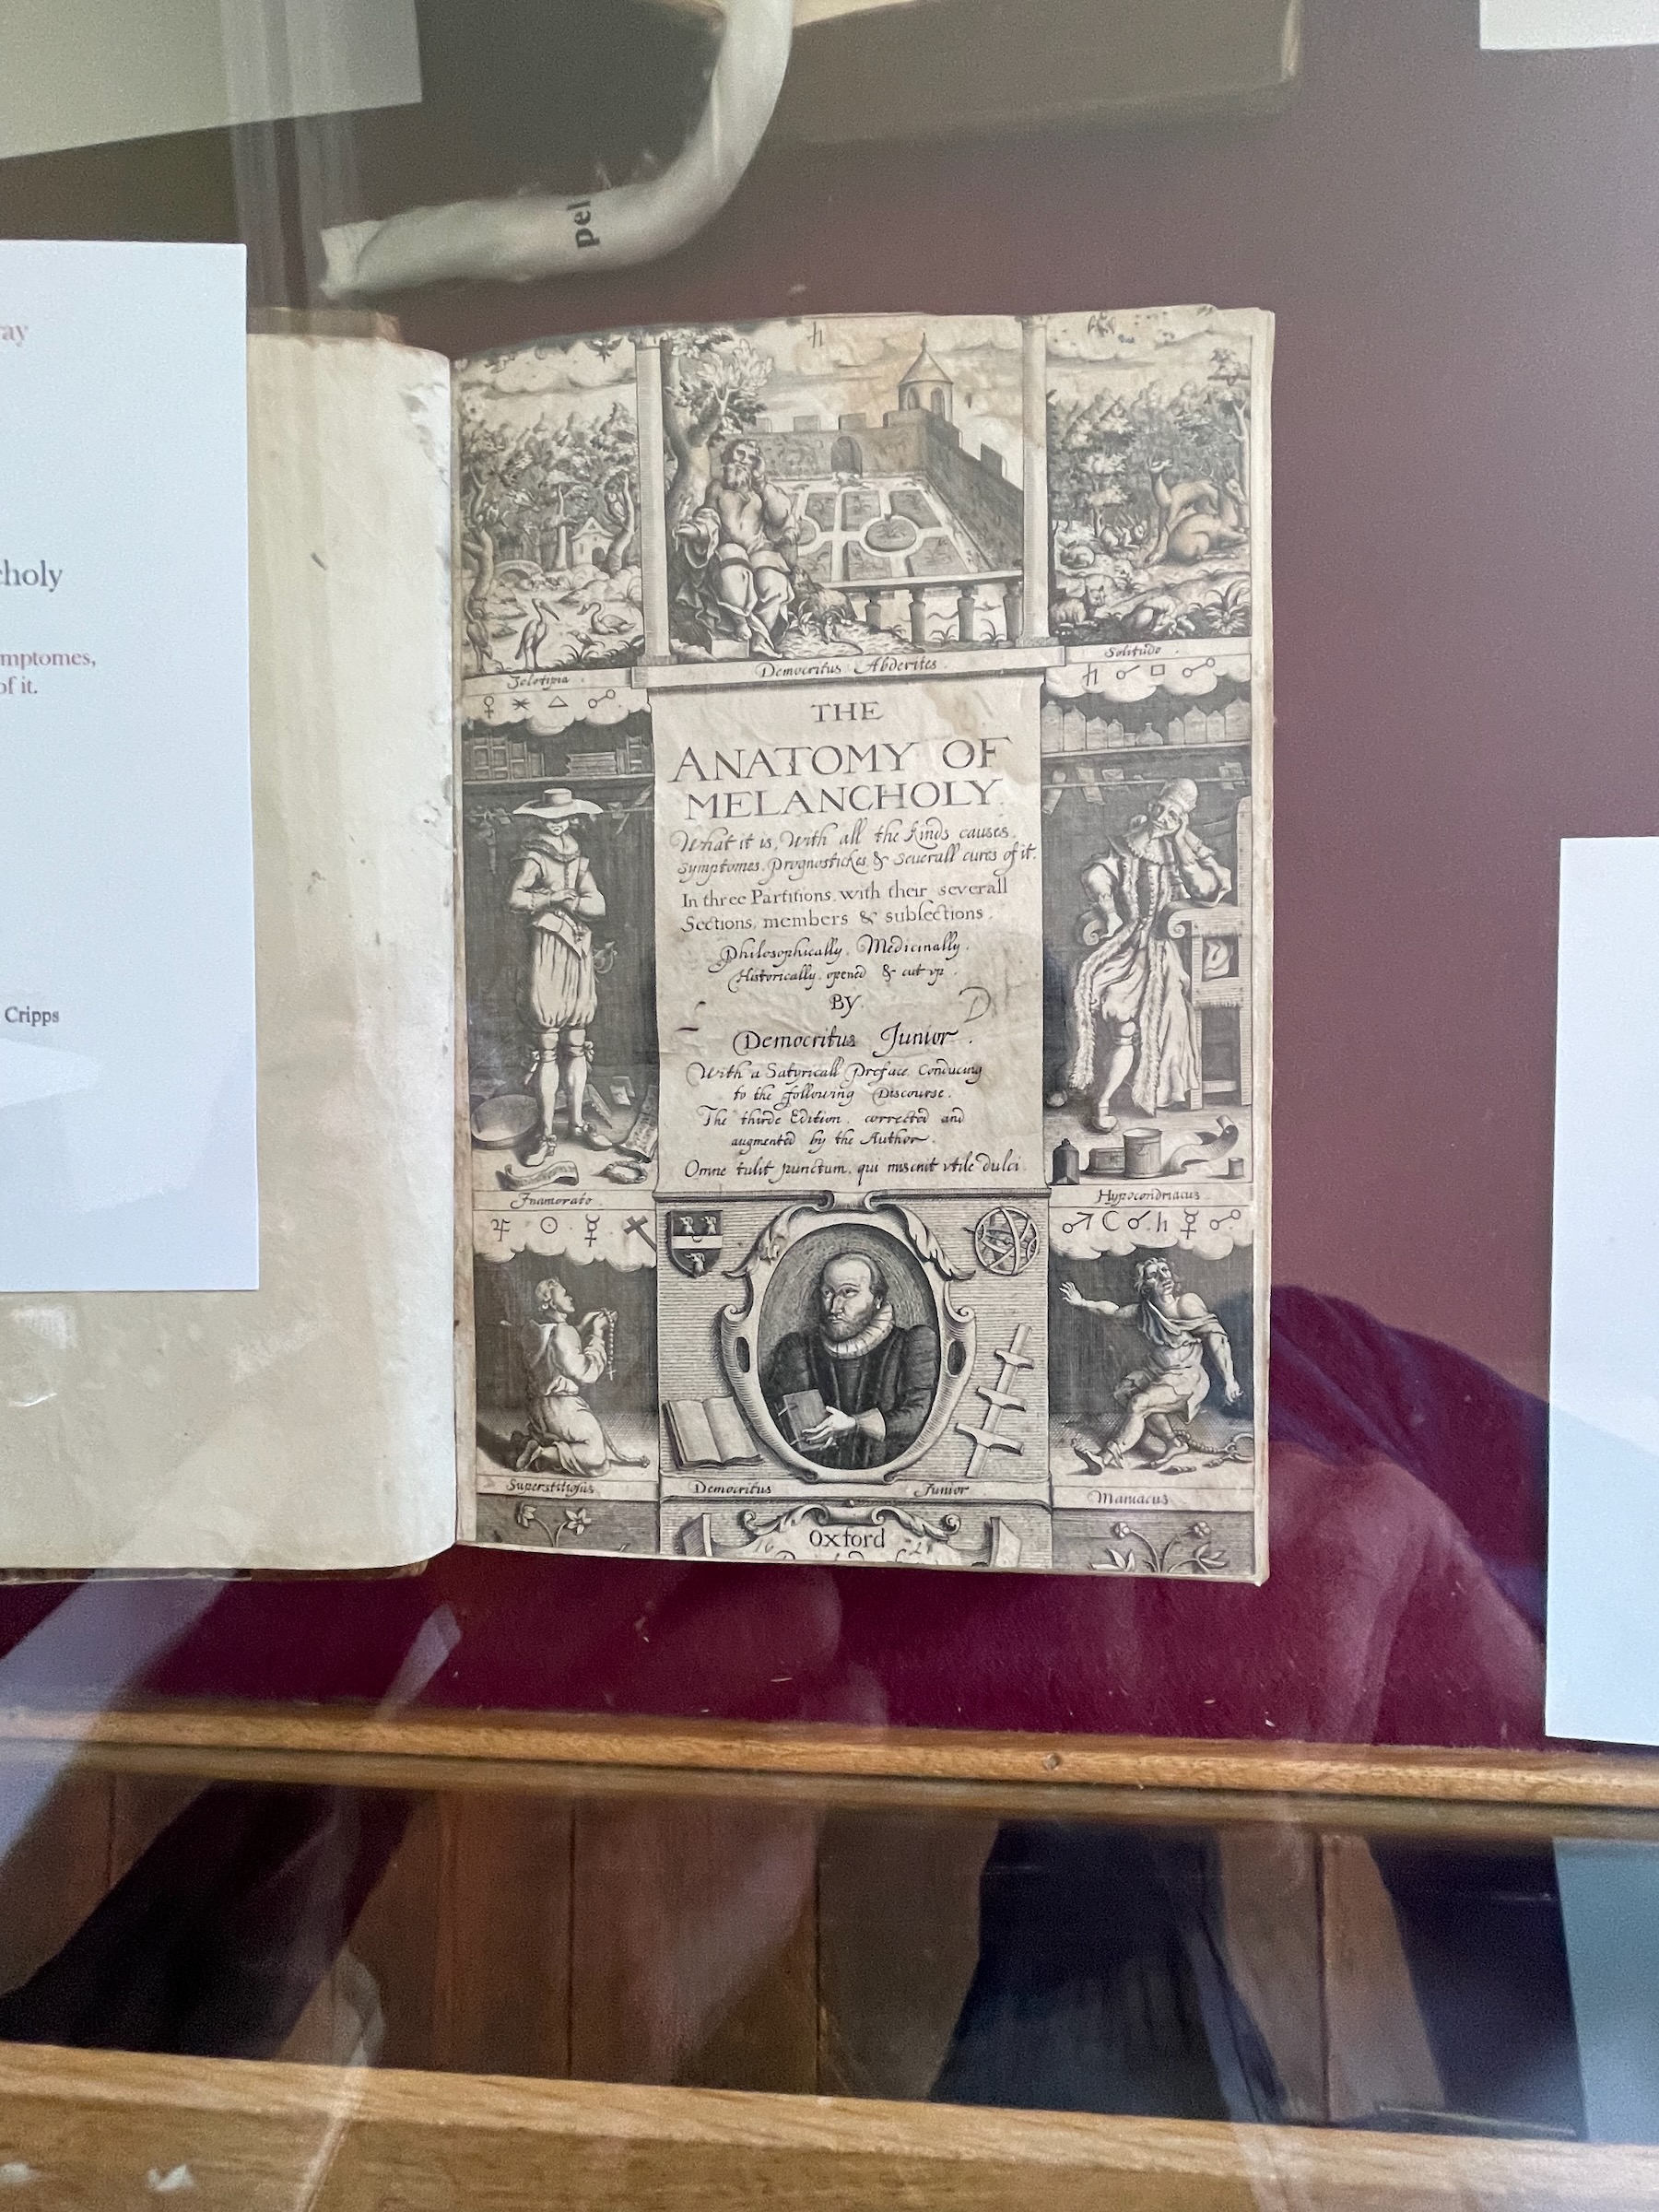 pel
ay
choly
mptomes,
of it.
Cripps
Democritus Abderites.
Zelotipia.
Solitudo.
♀ ⚹ △ ☍
♄ ☌ □ ☍
THE
ANATOMY OF
MELANCHOLY.
What it is, With all the kinds causes,
symptomes, prognostickes, & severall cures of it.
In three Partitions, with their severall
Sections, members & subsections,
Philosophically, Medicinally,
Historically, opened & cut vp.
BY.
Democritus Junior.
With a Satyricall Preface, Conducing
to the following Discourse.
The thirde Edition, corrected and
augmented by the Author.
Omne tulit punctum, qui miscuit vtile dulci.
Inamorato
Hypocondriacus
♃ ☉ ☿
♂ ☾ ☌ ♄ ☿ ☍
Superstitiosus
Democritus Junior
Maniacus
Oxford